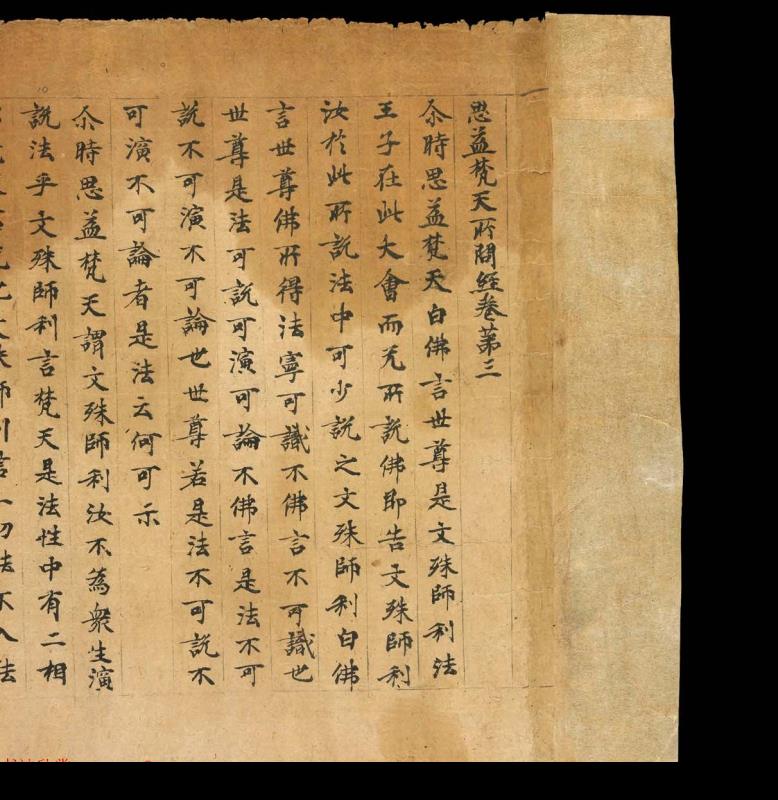 思益梵天所問經卷第三
尒時思益梵天白佛言世尊是文殊師利法
王子在此大會而无所說佛即告文殊師利
汝於此所說法中可少說之文殊師利白佛
言世尊佛所得法寧可識不佛言不可識也
世尊是法可說可演可論不佛言是法不可
說不可演不可論也世尊若是法不可說不
可演不可論者是法云何可示
尒時思益梵天謂文殊師利汝不為衆生演
說法乎文殊師利言梵天是法性中有二相
文殊師利言一切法不入法